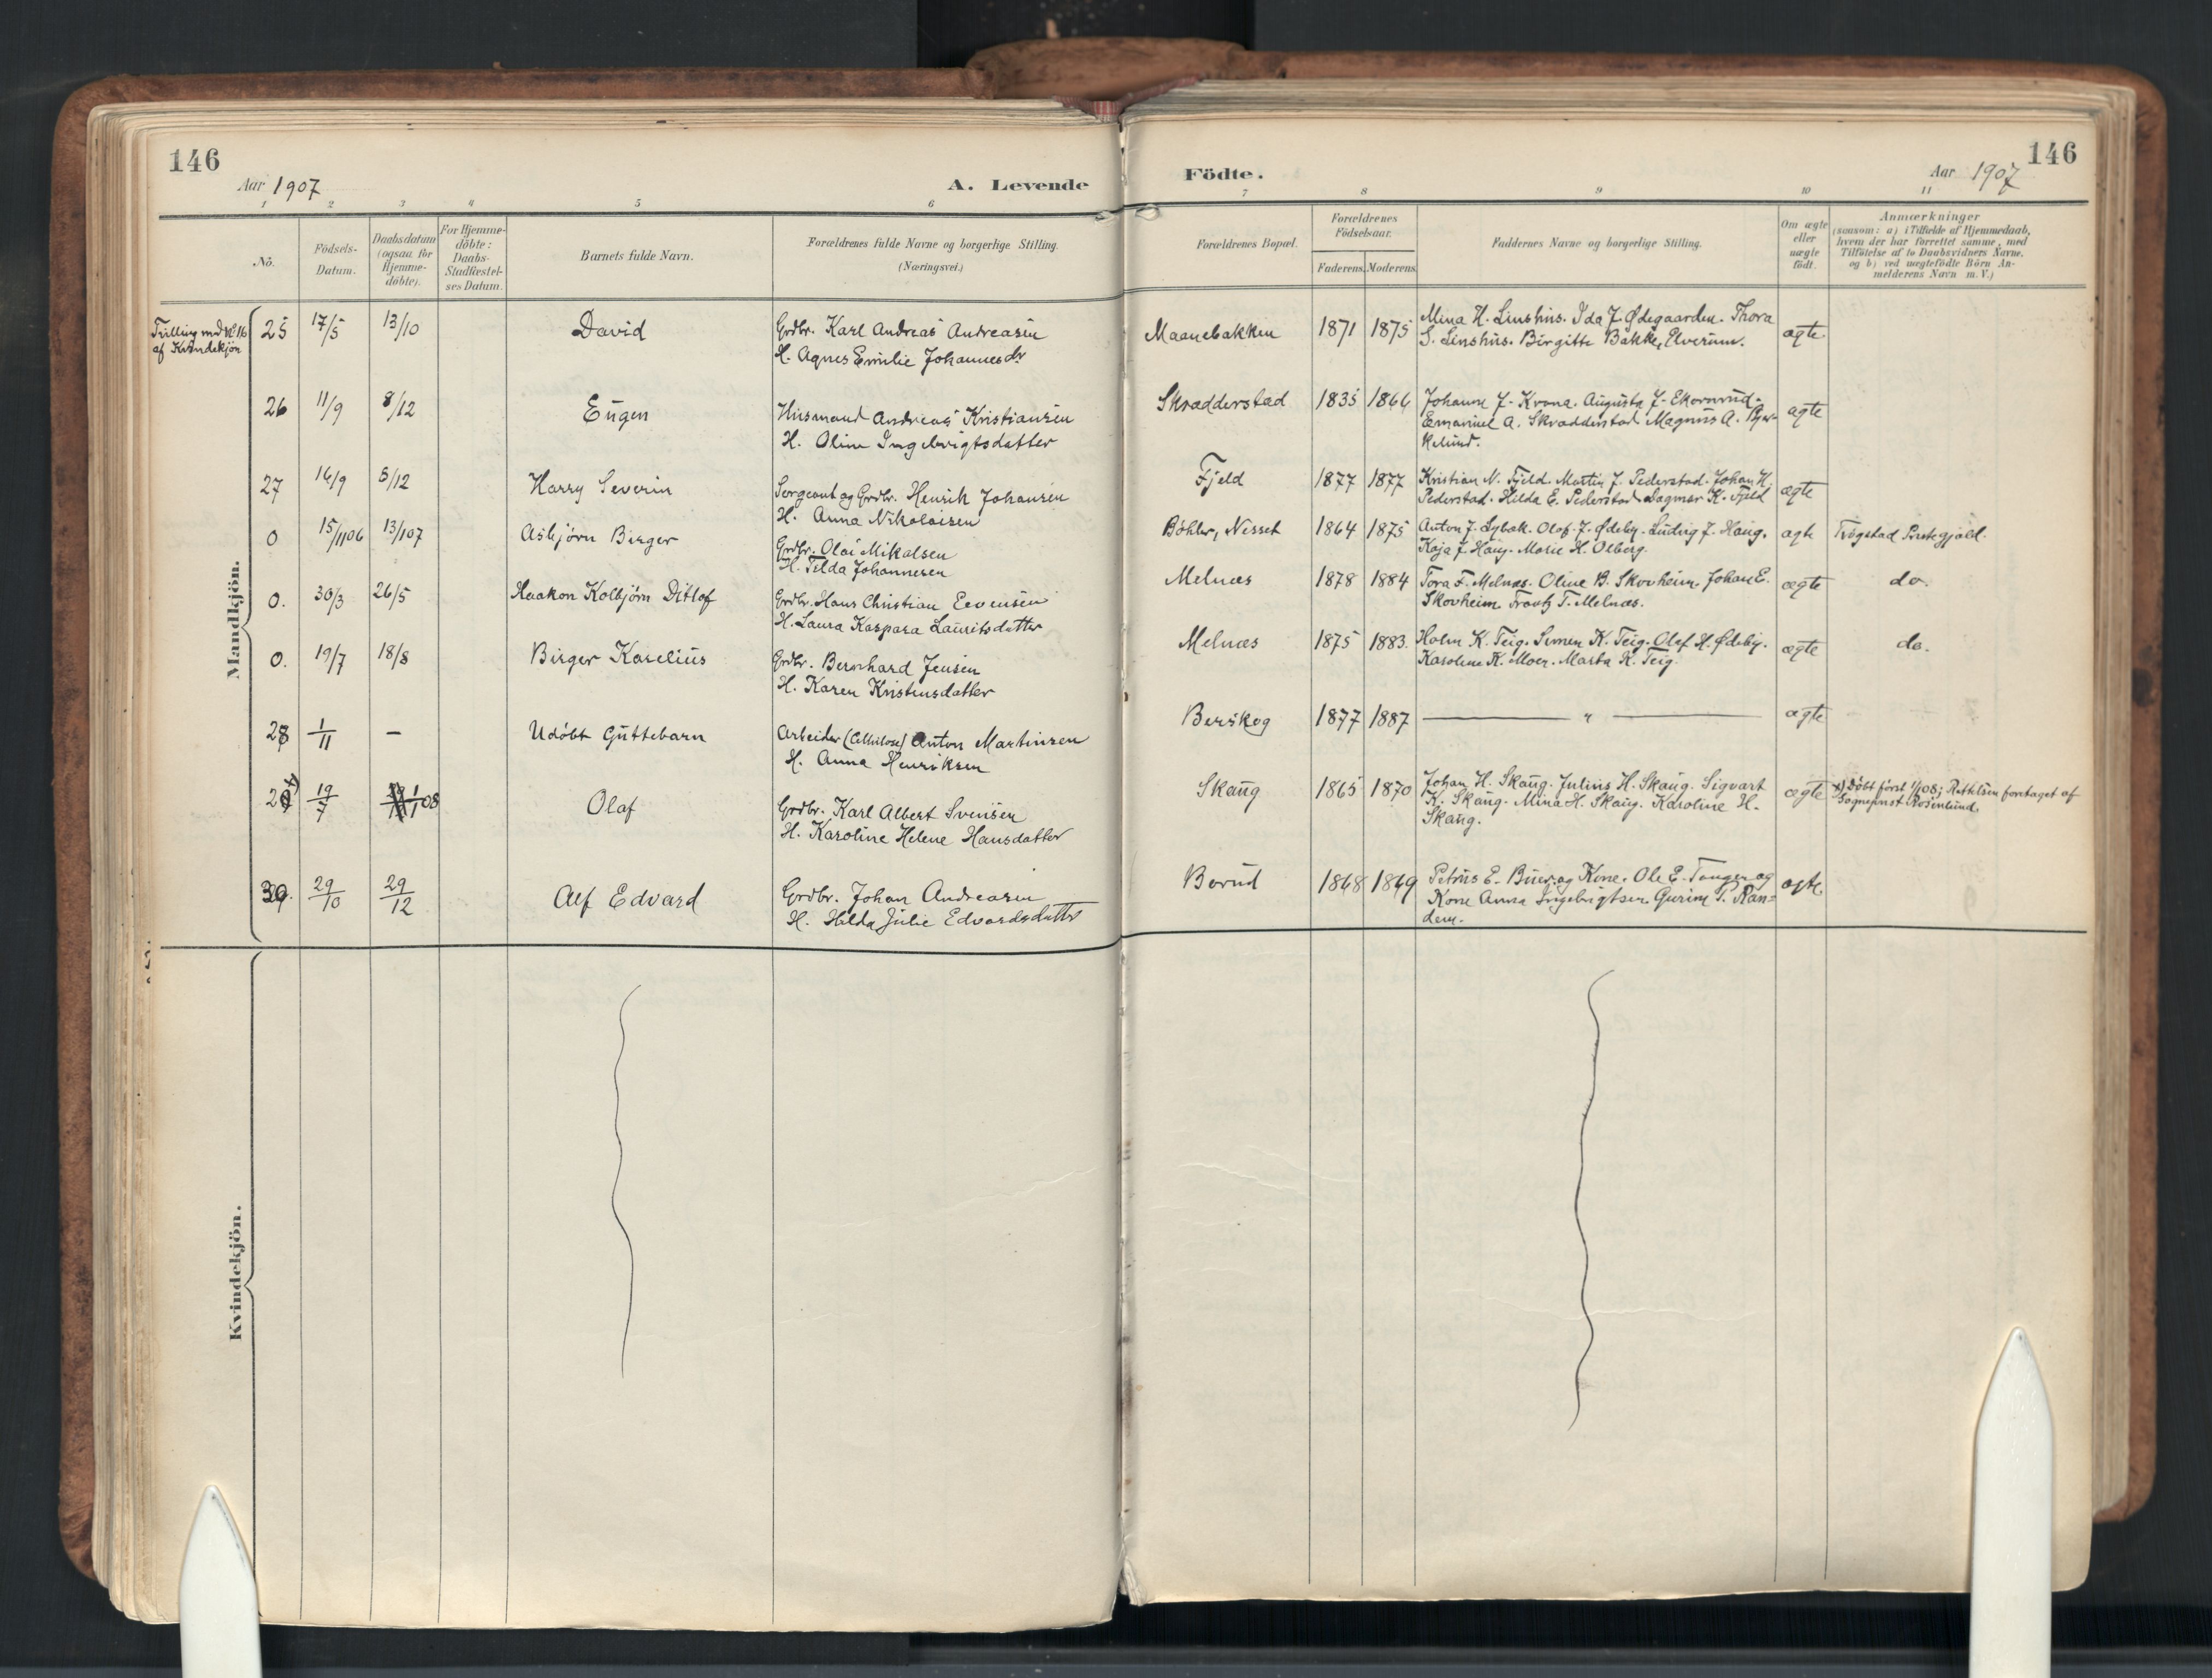 146
Aar 1907
A. Levende
1 2 3 4 5 6
No.
Födsels-
Datum.
Daabsdatum
(ogsaa for
Hjemme-
döbte).
For Hjemme-
döbte:
Daabs-
Stadfæstel-
ses Datum.
Barnets fulde Navn.
Forældrenes fulde Navne og borgerlige Stilling.
(Næringsvei.)
Mandkjön.
Trilling med No 16
af Kvindekjön
25 17/5 13/10 David Grdbr. Karl Andreas Andreasen
H. Agnes Emilie Johannesdr
26 11/9 8/12 Eugen Husmand Andreas Kristiansen
H. Oline Ingebrigtsdatter
27 14/9 8/12 Harry Severin Sergeant og Grdbr. Henrik Johansen
H. Anna Nikolaisen
0 15/1106 13/107 Asbjørn Birger Grdbr. Olai Mikalsen
H. Tilda Johannesen
0. 30/3 26/5 Haakon Kolbjörn Ditlof Grdbr. Hans Christian Evensen
H. Laura Kaspara Lauritsdatter
0. 19/7 18/8 Birger Karelius Grdbr. Bernhard Jensen
H. Karen Kristensdatter
28 1/11 — Udöbt Guttebarn Arbeider (Cellulose) Anton Martinsen
H. Anna Henriksen
29 x) 19/7 1/1 08 Olaf Grdbr. Karl Albert Svensen
H. Karoline Helene Hansdatter
30. 29/10 29/12 Alf Edvard Grdbr. Johan Andreasen
H. Hilda Julie Edvardsdatter
Kvindekjön.
146
Födte.
Aar 1907
7 8 9 10 11
Forældrenes Bopæl.
Forældrenes
Födselsaar.
Faderens. Moderens.
Faddernes Navne og borgerlige Stilling.
Om ægte
eller
uægte
födt.
Anmærkninger
(saasom: a) i Tilfælde af Hjemmedaab,
hvem der har forrettet samme, med
Tilföielse af to Daabsvidners Navne,
og b) ved uægtefödte Börn An-
melderens Navn m. V.)
Maanebakken 1871 1875 Mina H. Linshus. Ida J. Ødegaarden. Thora
S. Linshus. Birgitte Bakke, Elverum. ægte.
Skradderstad 1835 1866 Johanne J. Krona. Augusta J. Ekornrud.
Emanuel A. Skraddestad Magnus A. Bjer-
kelund. ægte
Fjeld 1877 1877 Kristian N. Fjeld. Martin J. Pederstad. Johan H.
Pederstad. Hilda E. Pederstad. Dagmar K. Fjeld ægte
Böhler, Nesset 1864 1875 Anton J. Lybæk. Olof J. Ødeby. Ludvig J. Haug.
Kaja J. Haug. Marie H. Olberg. ægte Trögstad Prestegjæld.
Melnæs 1878 1884 Tora F. Melnæs. Oline B. Skovheim. Johan E.
Skovheim. Frantz T. Melnæs. ægte do.
Melnæs 1875 1883. Holm K. Teig. Simen K. Teig. Olaf H. Ødeby.
Karoline K. Moen. Marta K. Teig. ægte do.
Berskog 1877 1887 — " — ægte
Skaug 1865 1870 Johan H. Skaug. Julius H. Skaug. Sigvart
K. Skaug. Mina H. Skaug. Karoline H.
Skaug. ægte x) Döbt först 1/1 08; Rettelsen foretaget af
Sogneprest Rosenlund.
Borud 1868 1869 Petrus E. Buer og Kone. Ole E. Tangen og
Kone Anna Ingebrigtsen. Gurine P. Ran=
dem. ægte.